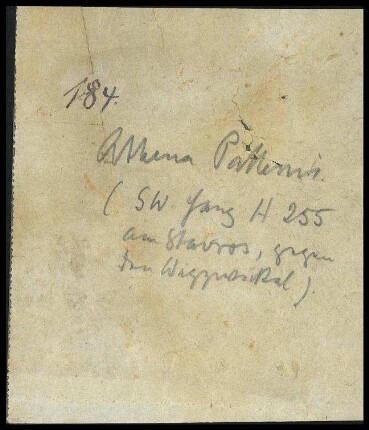 184.
Athena Parthenos.
(SW. Hang H 255
am Stavros, gegen
den Wegzwickel).